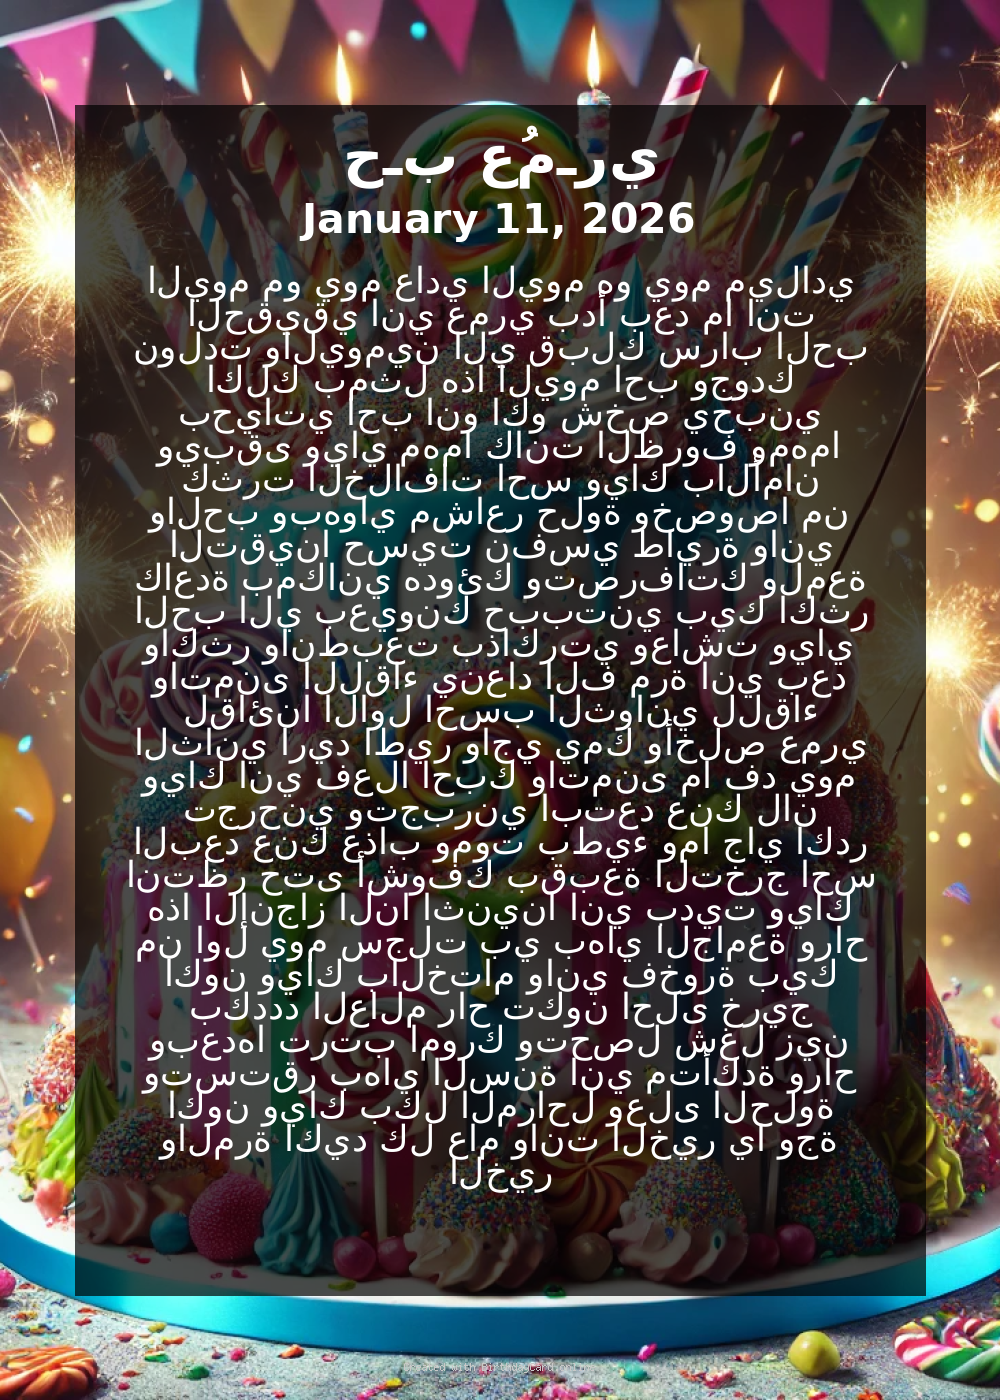 حـب عُمـري
January 11, 2026
اليوم مو يوم عادي اليوم هو يوم ميلادي
الحقيقي اني عمري بدأ بعد ما انت
نولدت واليومين الي قبلك سراب الحب
اكلك بمثل هذا اليوم احب وجودك
بحياتي احب انو اكو شخص يحبني
ويبقى وياي مهما كانت الظروف ومهما
كثرت الخلافات احس وياك بالأمان
والحب وبهواي مشاعر حلوة وخصوصا من
التقينا حسيت نفسي طايرة واني
كاعدة بمكاني هدوئك وتصرفاتك ولمعة
الحب الي بعيونك حببتني بيك اكثر
واكثر وانطبعت بذاكرتي وعاشت وياي
واتمنى اللقاء ينعاد الف مرة اني بعد
لقائنا الاول احسب الثواني للقاء
الثاني اريد اطير واجي يمك وأخلص عمري
وياك اني فعلا احبك واتمنى ما فد يوم
تجرحني وتجبرني ابتعد عنك لان
البعد عنك عذاب وموت بطيء وما جاي اكدر
انتظر حتى أشوفك بقبعة التخرج احس
هذا الإنجاز النا اثنينا اني بديت وياك
من اول يوم سجلت بي بهاي الجامعة وراح
اكون وياك بالختام واني فخورة بيك
بكددد العالم راح تكون احلى خريج
وبعدها ترتب امورك وتحصل شغل زين
وتستقر بهاي السنة اني متأكدة وراح
اكون وياك بكل المراحل وعلى الحلوة
والمرة اكيد كل عام وانت الخير يا وجة
الخير